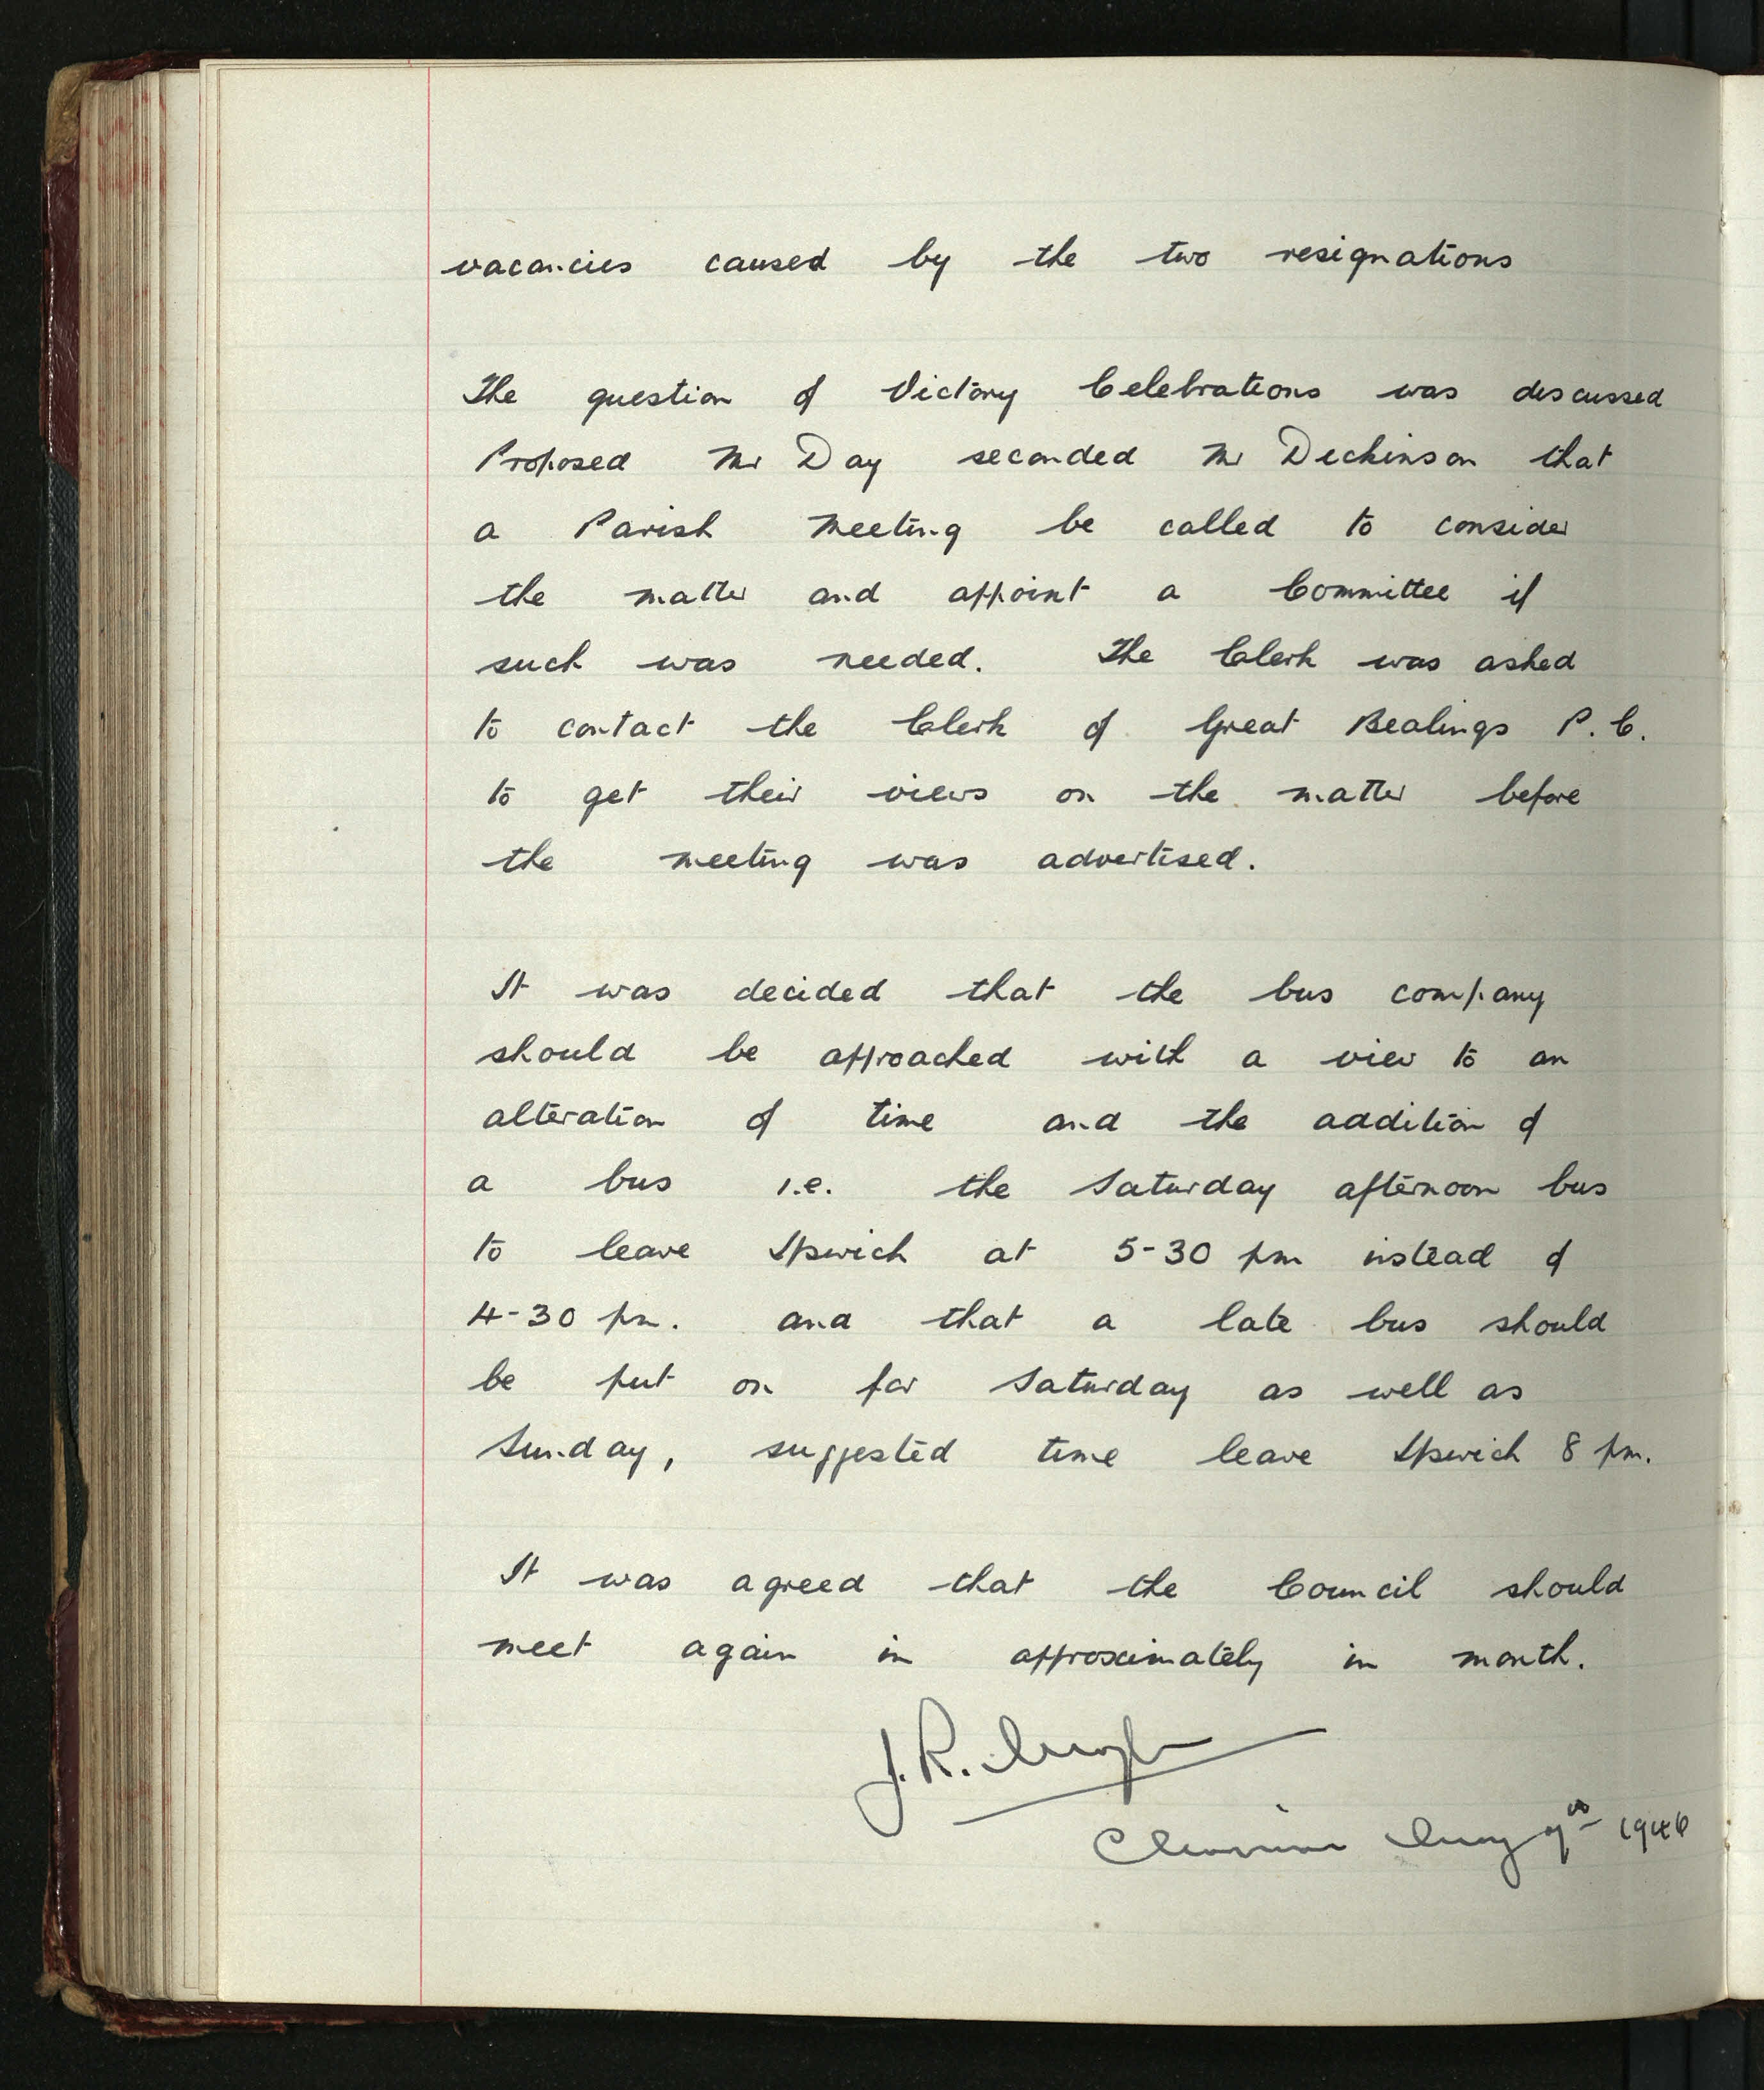 vacancies caused by the two resignations
The question of Victory Celebrations was discussed
Proposed Mr Day seconded Mr Dickinson that
a Parish Meeting be called to consider
the matter and appoint a Committee if
such was needed. The Clerk was asked
to contact the Clerk of Great Bealings P.C.
to get their views on the matter before
the meeting was advertised.
It was decided that the bus company
should be approached with a view to an
alteration of time and the addition of
a bus i.e. the Saturday afternoon bus
to leave Ipswich at 5-30 pm instead of
4-30 pm. and that a late bus should
be put on for Saturday as well as
Sunday, suggested time leave Ipswich 8 pm.
It was agreed that the Council should
meet again in approximately in month.
J. R.
Chairman May 9th 1946